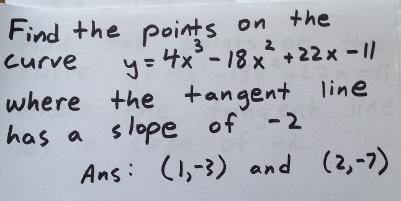 Find the points on the
curve y = 4x³ - 18x² + 22x - 11
where the tangent line
has a slope of -2
Ans: (1,-3) and (2,-7)